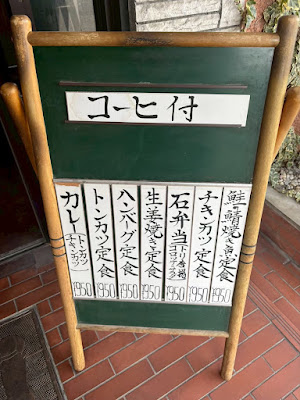 コーヒ付
鮭or鯖焼き魚定食
1950
チキンカツ定食
1950
石弁当
1950
生姜焼き定食
1950
ハンバーグ定食
1950
トンカツ定食
1950
カレー
トンカツ
チキンカツ
1950